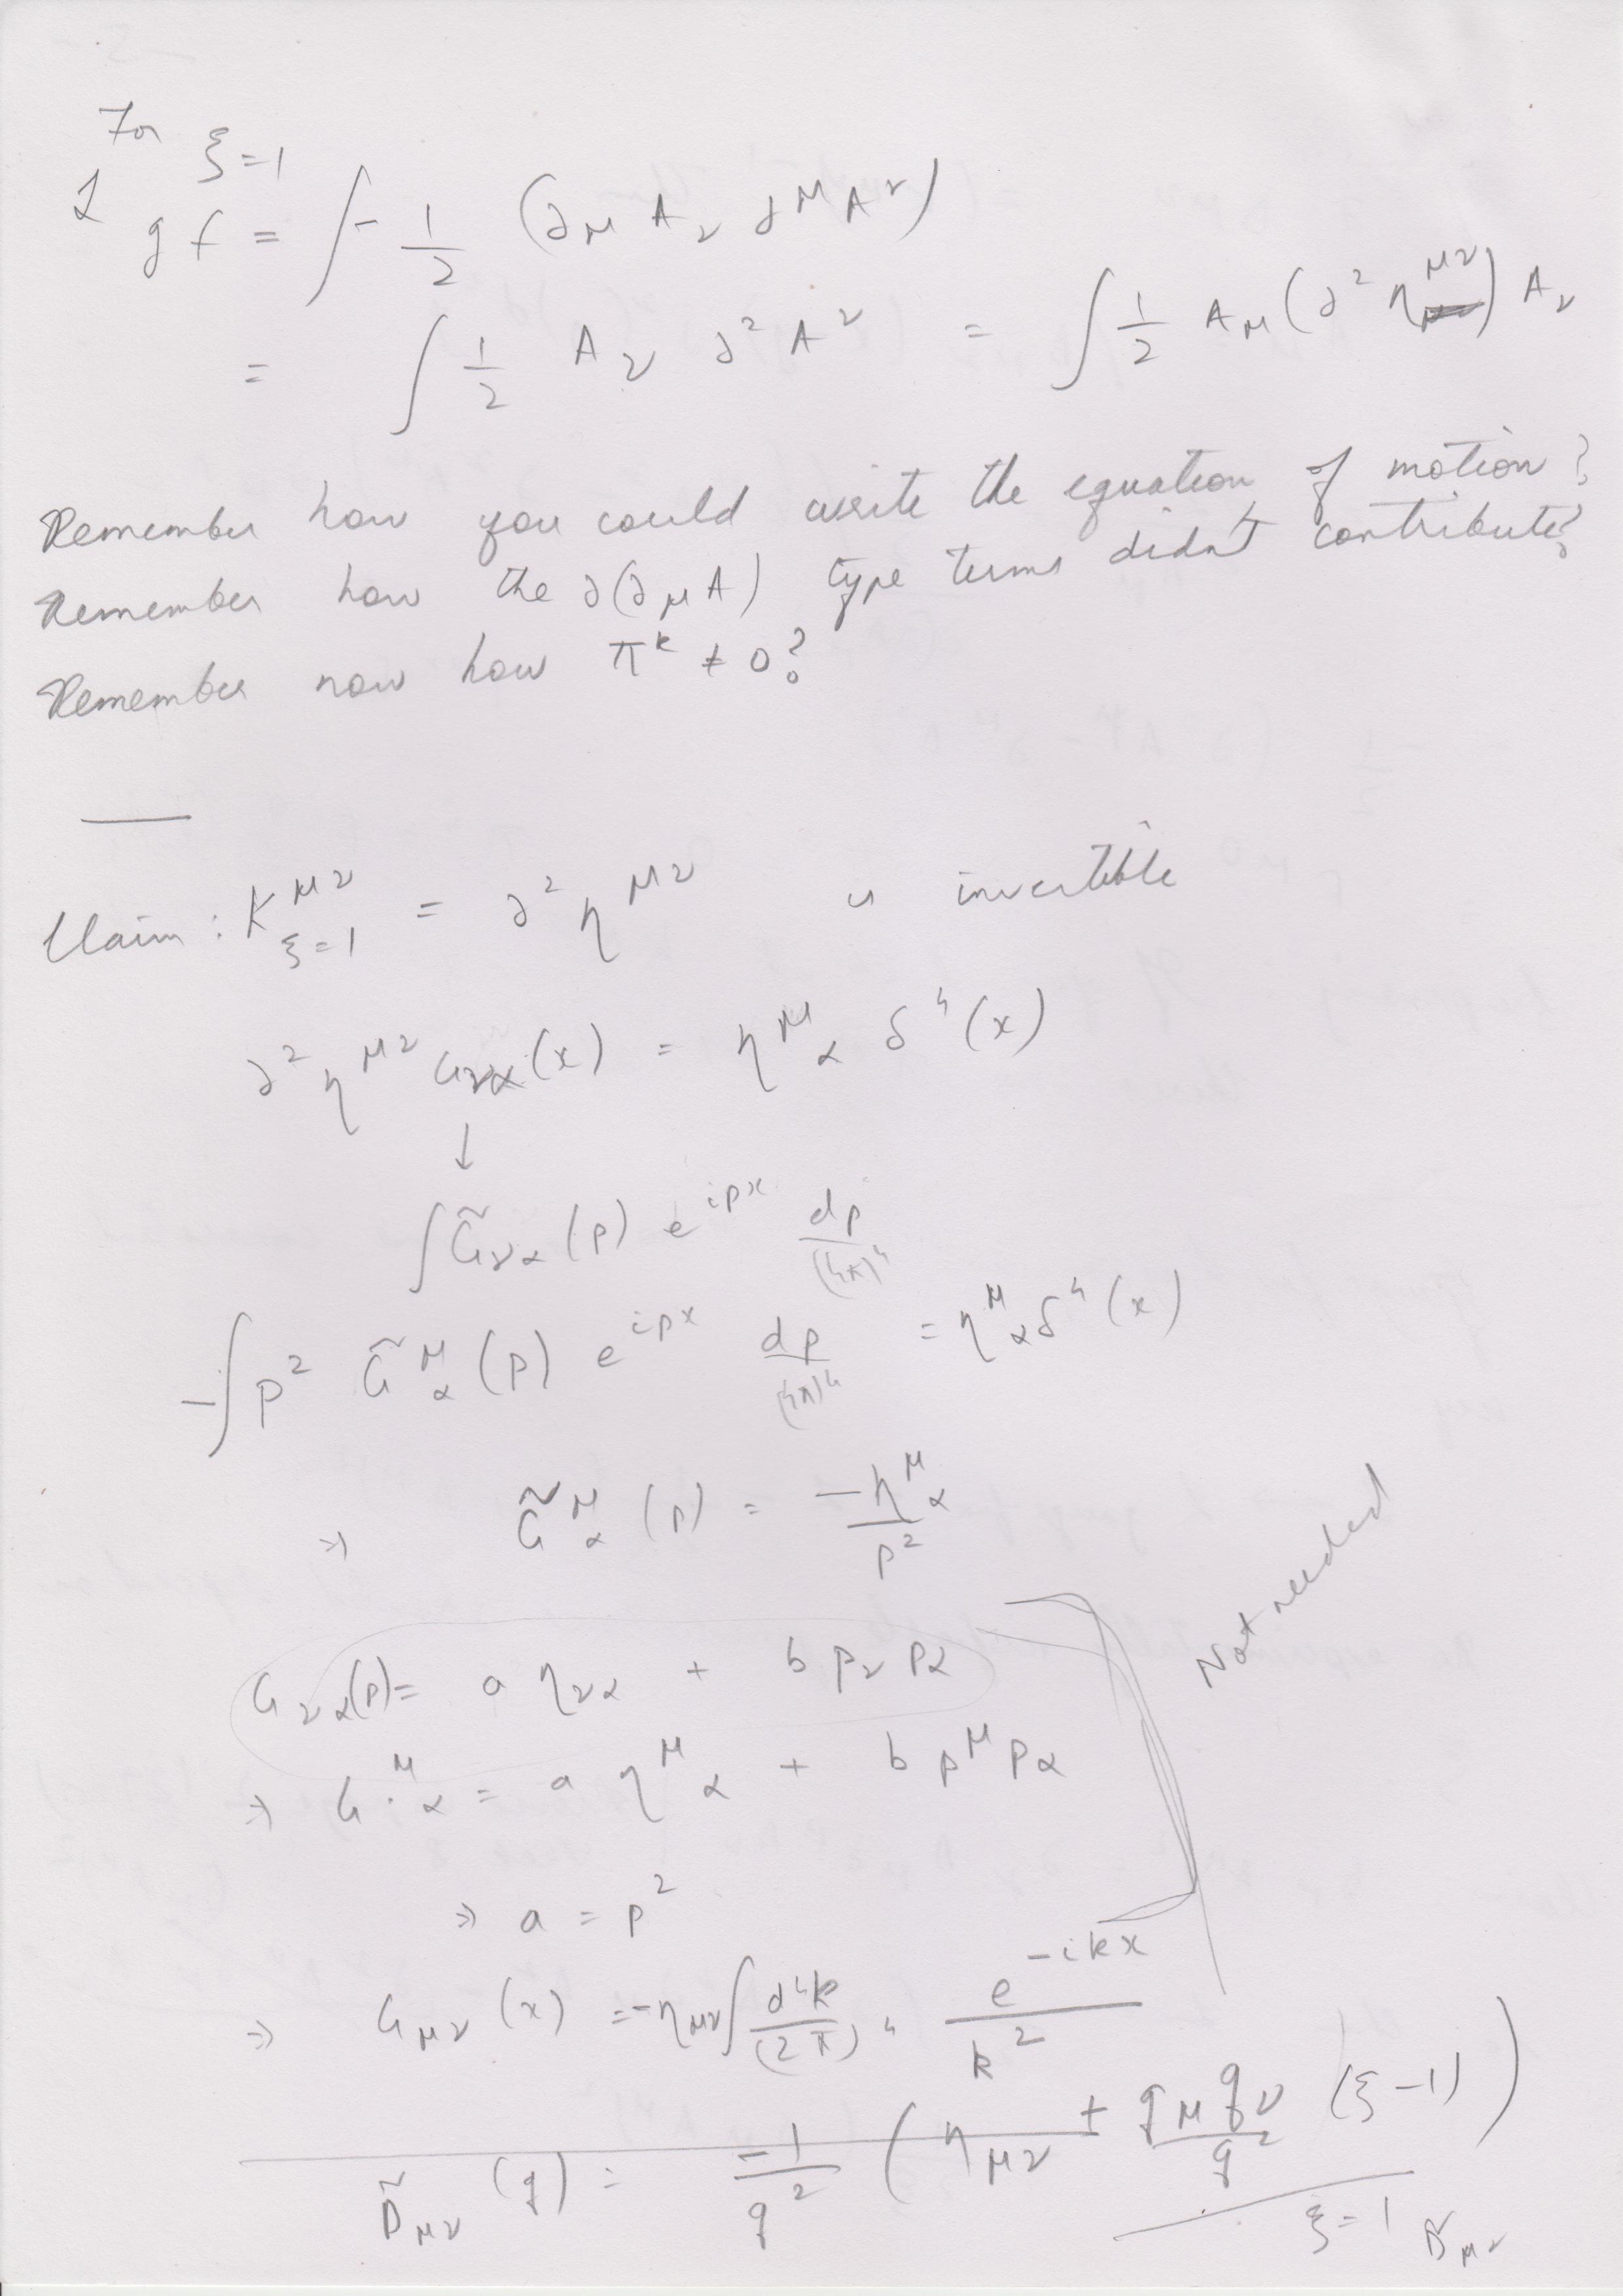 For ξ=1
ℒ gf = ∫ - 1/2 (∂_μ A_ν ∂^μ A^ν)
= ∫ 1/2 A_ν ∂² A^ν = ∫ 1/2 A_μ (∂² η^{μν}) A_ν
Remember how you could write the equation of motion?
Remember how the ∂(∂_μ A) type terms didn't contribute?
Remember now how π^k ≠ 0?
Claim : K^{μν}_{ξ=1} = ∂² η^{μν} is invertible
∂² η^{μν} G_{να}(x) = η^μ_α δ⁴(x)
↓
∫ G̃_{να}(p) e^{ipx} dp/(4π)⁴
-∫ p² G̃^μ_α (p) e^{ipx} dp/(4π)⁴ = η^μ_α δ⁴(x)
⇒ G̃^μ_α (p) = -η^μ_α/p²
Not needed
G_{να}(p) = a η_{να} + b p_ν p_α
⇒ G^μ_α = a η^μ_α + b p^μ p_α
⇒ a = p²
⇒ G_{μν}(x) = -η_{μν} ∫ d⁴k/(2π)⁴ e^{-ikx}/k²
D̃_{μν}(q) = -1/q² (η_{μν} + q_μ q_ν/q² (ξ-1))
ξ=1 D̃_{μν}